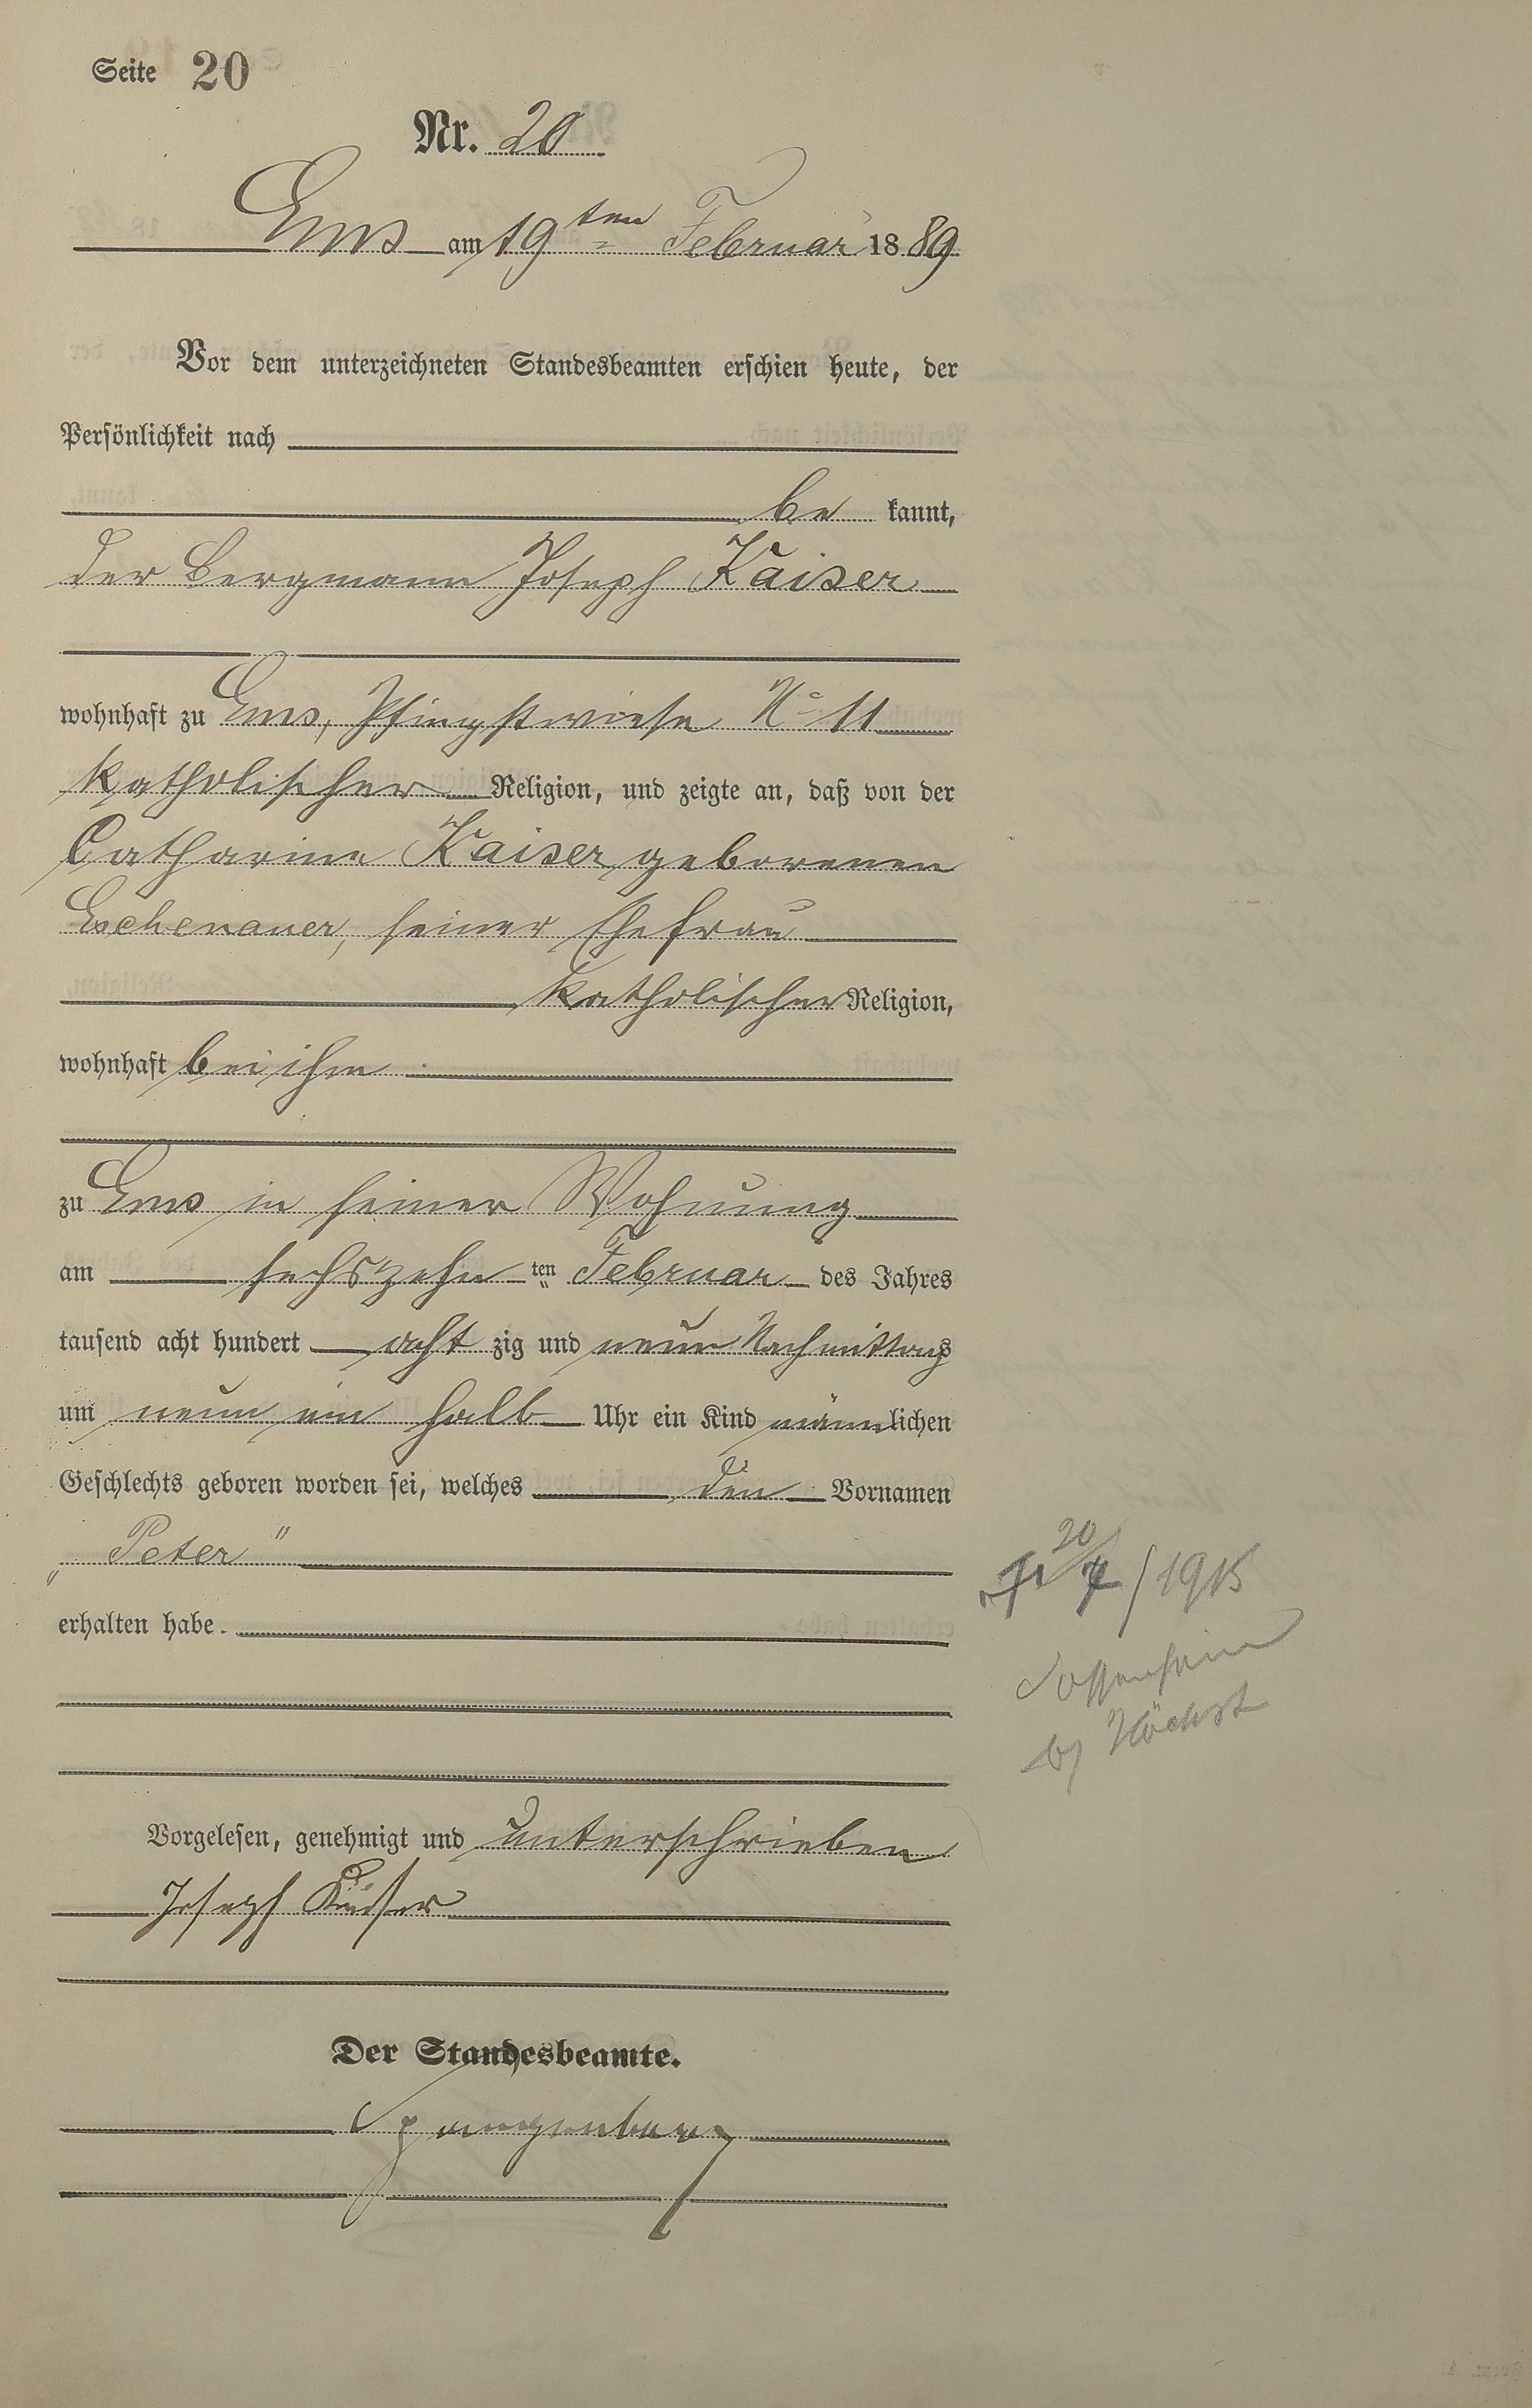 Seite 20
Nr. 20
Ems am 19ten Februar 1889
Vor dem unterzeichneten Standesbeamten erschien heute, der
Persönlichkeit nach
be kannt,
der Bergmann Joseph Kaiser
wohnhaft zu Ems, Pfingstwiese No 11
katholischer Religion, und zeigte an, daß von der
Catharine Kaiser geborenen
Eschenauer, seiner Ehefrau
katholischer Religion,
wohnhaft bei ihm
zu Ems in seiner Wohnung
am sechszehn ten Februar des Jahres
tausend acht hundert acht zig und neun Nachmittags
um neun ein halb Uhr ein Kind männlichen
Geschlechts geboren worden sei, welches den Vornamen
„Peter"
erhalten habe.
20/7/1915
Sossenheim
b/ Höchst
Vorgelesen, genehmigt und unterschrieben
Joseph Kaiser
Der Standesbeamte.
Spangenberg